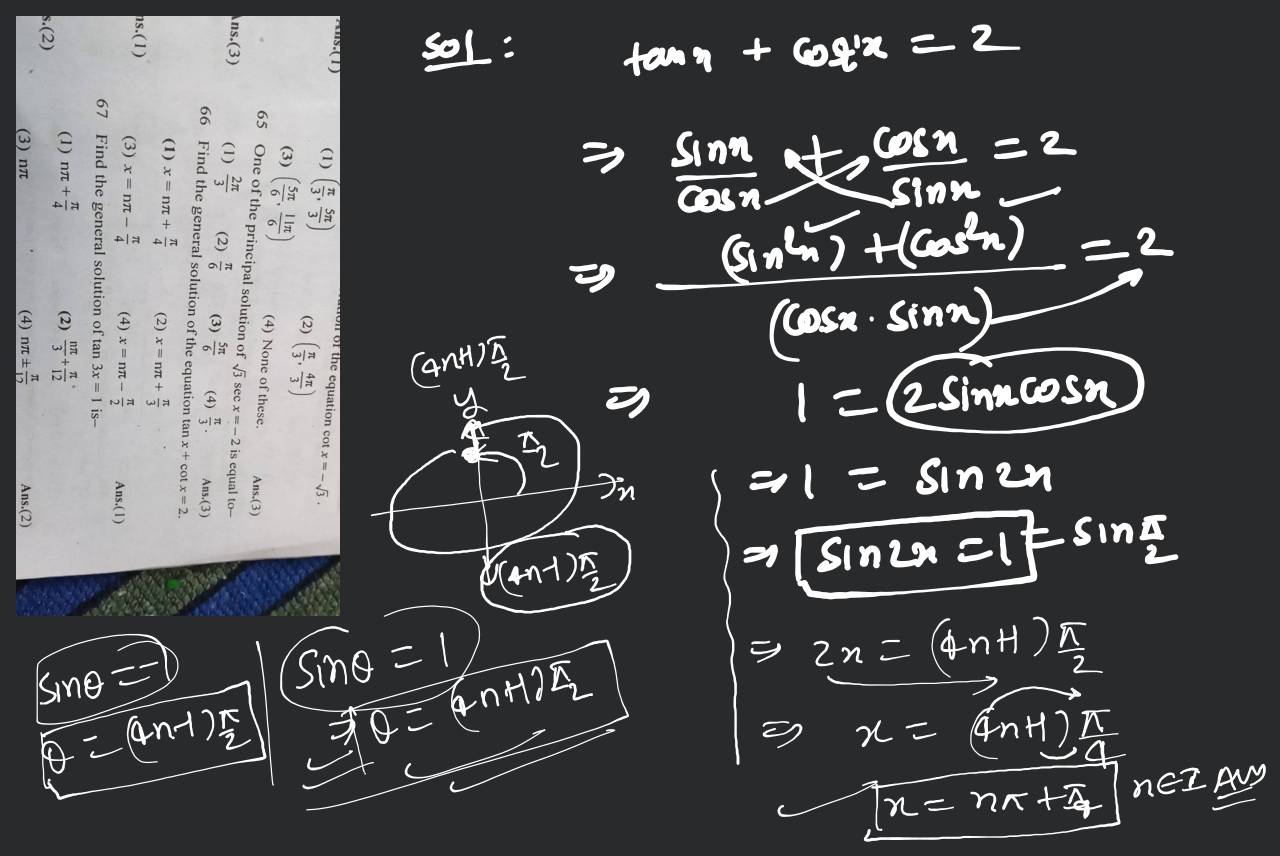 Ans.(1)
of the equation cot x = – √3 .
(1) (π/3, 5π/3)
(2) (π/3, 4π/3)
(3) (5π/6, 11π/6)
(4) None of these.
Ans.(3)
65 One of the principal solution of √3 sec x = – 2 is equal to–
(1) 2π/3 (2) π/6 (3) 5π/6 (4) π/3 .
Ans.(3)
Ans.(3)
66 Find the general solution of the equation tan x + cot x = 2.
(1) x = nπ + π/4
(2) x = nπ + π/3
(3) x = nπ – π/4
(4) x = nπ – π/2
Ans.(1)
ns.(1)
67 Find the general solution of tan 3x = 1 is–
(1) nπ + π/4
(2) nπ/3 + π/12 .
(3) nπ
(4) nπ ± π/12
Ans.(2)
s.(2)
Sol :
tan x + cot x = 2
⇒ sinx/cosx + cosx/sinx = 2
⇒ (sin²x) + (cos²x)/(cosx · sinx) = 2
⇒ 1 = 2 sinx cosx
⇒ 1 = sin 2x
⇒ sin2x = 1 = sin π/2
⇒ 2x = (4n+1) π/2
⇒ x = (4n+1) π/4
x = nπ + π/4 n∈I Ans
(4n+1) π/2
y
π/2
x
(4n-1) π/2
sinθ = -1
θ = (4n-1) π/2
sinθ = 1
⇒ θ = (4n+1) π/2